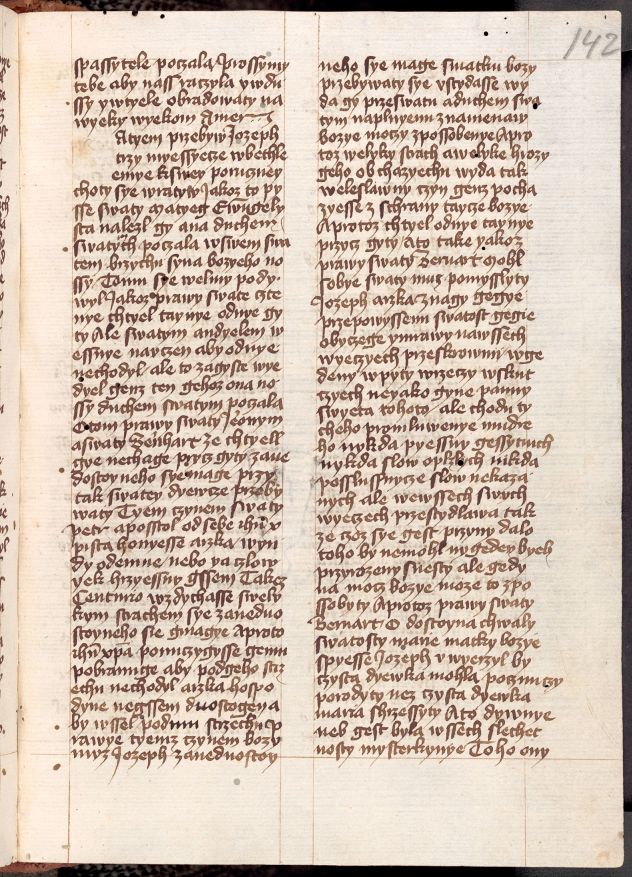 142
spassytele poczala Prossymy
tebe aby nass raczyla vwdu
ssy ywtyele obradowaty na
wyeky wyekom Amen
Atyem przebyw Jozeph
trzy myessyecze wbethle
emye kswey poruczney
choty sye wratyw Jakoz to py
sse swaty Matyeg Ewangely
sta nalezl gy ana duchem
swatych poczala wswem swa
tem brzychu syna bozyeho no
ssy Tomu sye welmy pody
wyl Jakoz prawy swate czte
nye chtyel taynye odnye gy
ty Ale swatym andyelem w
essnye navczen aby odnye
nechodyl ale to zagyste wye
dyel genz ten gehoz ona no
ssy duchem swatym poczala
Otom prawy swaty Jeronym
aswaty Bernhart ze chtyell
gye nechage prycz gyty zane
dostoyneho sye mage przy
tak swatey dyewcze przeby
waty Tyem czynem swaty
petr aposstol odsebe ihu x
pista honyesse arzka wyn
dy odemne nebo ya czlow
yek hrzyessny gssem Takez
Centurio wzdychasse swely
kym strachem sye zaneduo
stoyneho sie gmagye aproto
ihu xpa ponuczygysse gemu
pobranige aby podgeho strz
echu nechodyl arzka hospo
dyne negssem duostogen a
by wssel podmu strzechu p
rawye tyemz czynem bozy
muz Jozeph zaneduostoy
neho sye mage swatku bozy
przebywaty sye vstydasse wy
da gy przeswatu aduchem swa
tym naplnyenu znamenaw
bozye moczy zpossobenye Apro
toz welyky strach awelyke hrozy
geho obchazyechu wyda tak
weleslawny czyn genz pocha
zyesse z schrany taycze bozye
Aprotoz chtyel odnye taynye
prycz gyty Ato take yakoz
prawy swaty Bernart mohl
sobye swaty muz pomysslyty
Jozeph arzka znagy gegye
przepowyssenu swatost gegie
obyczege vmrawy nawssech
wyeczech przeskrownu wge
deny wpyty wrzeczy wskut
czyech neyako gyne panny
swyeta tohoto ale chodu ty
cheho promluwenye mudre
ho nykda pyessny gessytnuch
nykda slow oplzlych nikda
posslussnycze slow nekaza
nych ale wewssech swych
wyeczech przestydlawa tak
ze czoz sye gest przyny dalo
toho by nemohl nygeden byeh
przyrozeny snesty ale gedy
na mocz bozye moze to zpo
ssobyty Aprotoz prawy swaty
Bernart O dostoyna chwaly
swatosty marie matky bozye
spyesse Jozeph vwyerzyl by
czysta dyewka mohla poczniczy
porodyty nez czysta dyewka
maria shrzessyty Ato dywnye
neb gest byla wssech slechet
nosty mysterkynye Toho ony